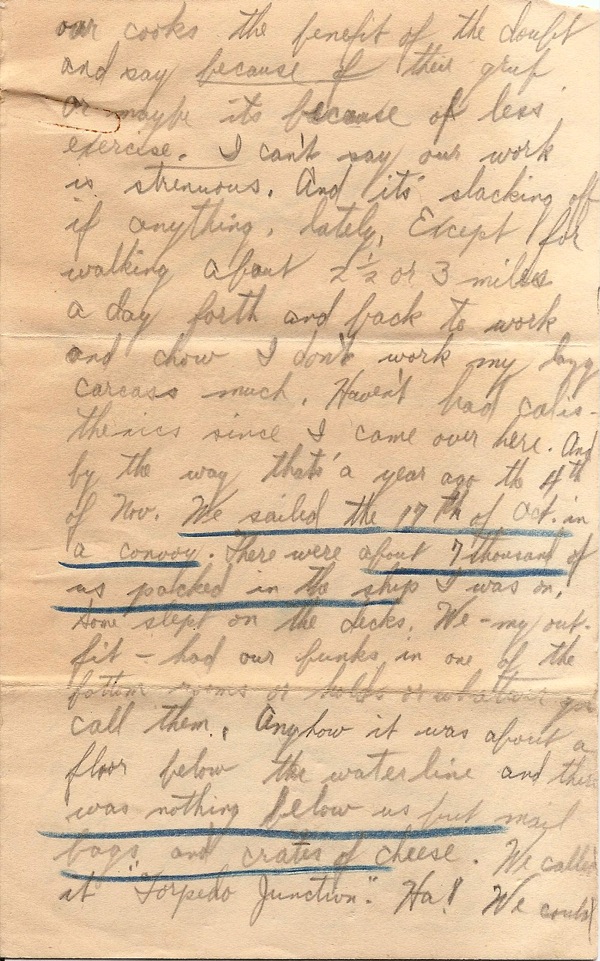 our cooks the benefit of the doubt
and say because of their gruf
or maybe its because of less
exercise. I can't say our work
is strenuous. And its slacking off
if anything, lately, Except for
walking about 2 1/2 or 3 miles
a day forth and back to work
and chow I don't work my lazy
carcass much. Haven't had calis-
thenics since I came over here. And
by the way that's a year ago the 4th
of Nov. We sailed the 17th of Oct. in
a convoy. There were about 7 thousand of
us packed in the ship I was on.
Some slept on the decks. We - my out-
fit - had our bunks in one of the
bottom rooms or holds or whatever you
call them. Anyhow it was about a
floor below the waterline and there
was nothing below us but mail
bags and crates of cheese. We called
it "Torpedo Junction". Ha! We could